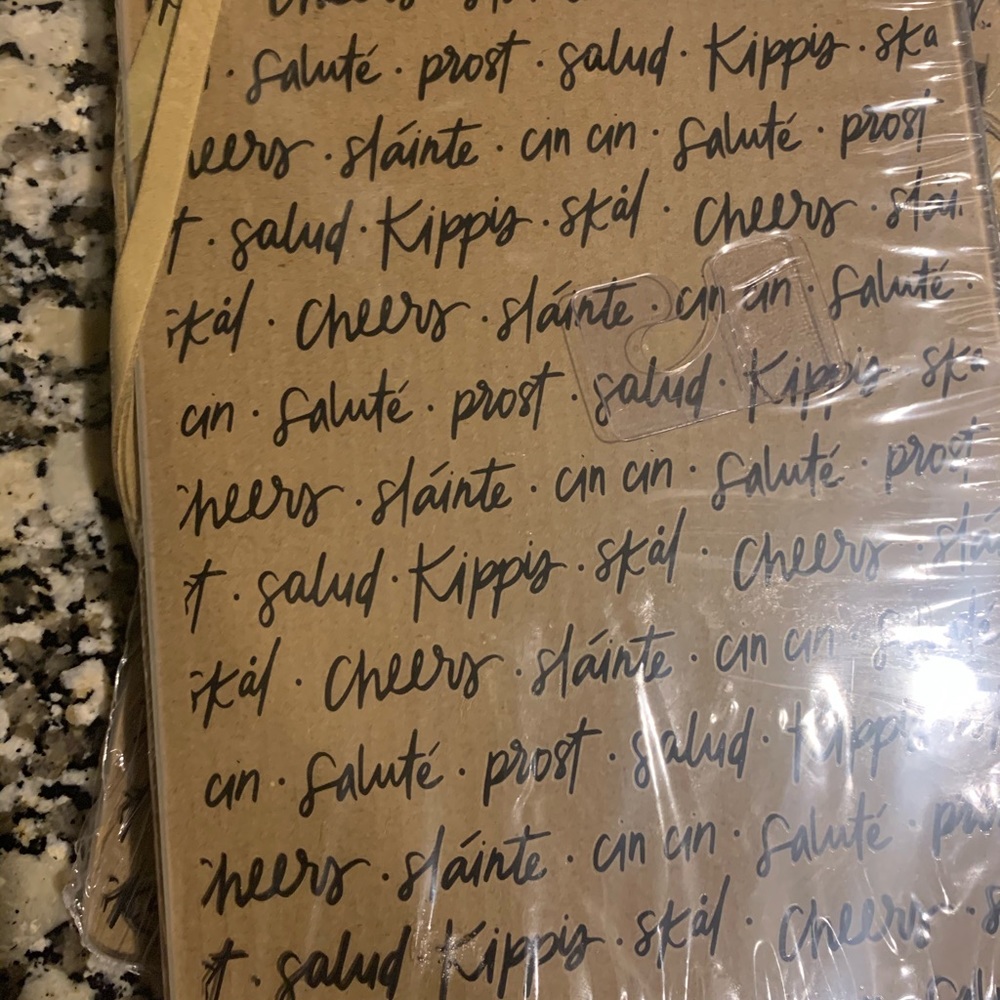 Cheers
· Saluté · prost · salud · Kippis · ska
heers · sláinte · cin cin · Saluté · prost
t · salud · Kippis · skål · Cheers · slái
skål · Cheers · sláinte · cin cin · Saluté ·
cin · Saluté · prost · salud · Kippis · ska
heers · sláinte · cin cin · Saluté · prost
t · salud · Kippis · skål · Cheers · slá
skål · Cheers · sláinte · cin cin ·
cin · Saluté · prost · salud · Kippis
heers · sláinte · cin cin · Saluté · pr
t · salud · Kippis · skål · Cheers · s